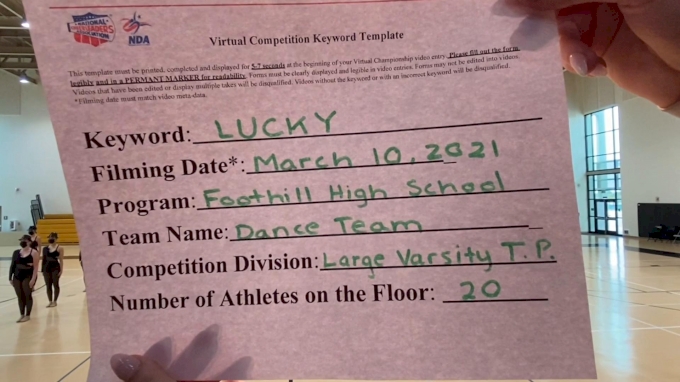 NATIONAL CHEERLEADERS ASSOCIATION
NDA
Virtual Competition Keyword Template
This template must be printed, completed and displayed for 5-7 seconds at the beginning of your Virtual Championship video entry. Please fill out the form
legibly and in a PERMANT MARKER for readability. Forms must be clearly displayed and legible in video entries. Forms may not be edited into videos.
Videos that have been edited or display multiple takes will be disqualified. Videos without the keyword or with an incorrect keyword will be disqualified.
*Filming date must match video meta-data.
Keyword: LUCKY
Filming Date*: March 10, 2021
Program: Foothill High School
Team Name: Dance Team
Competition Division: Large Varsity T.P.
Number of Athletes on the Floor: 20